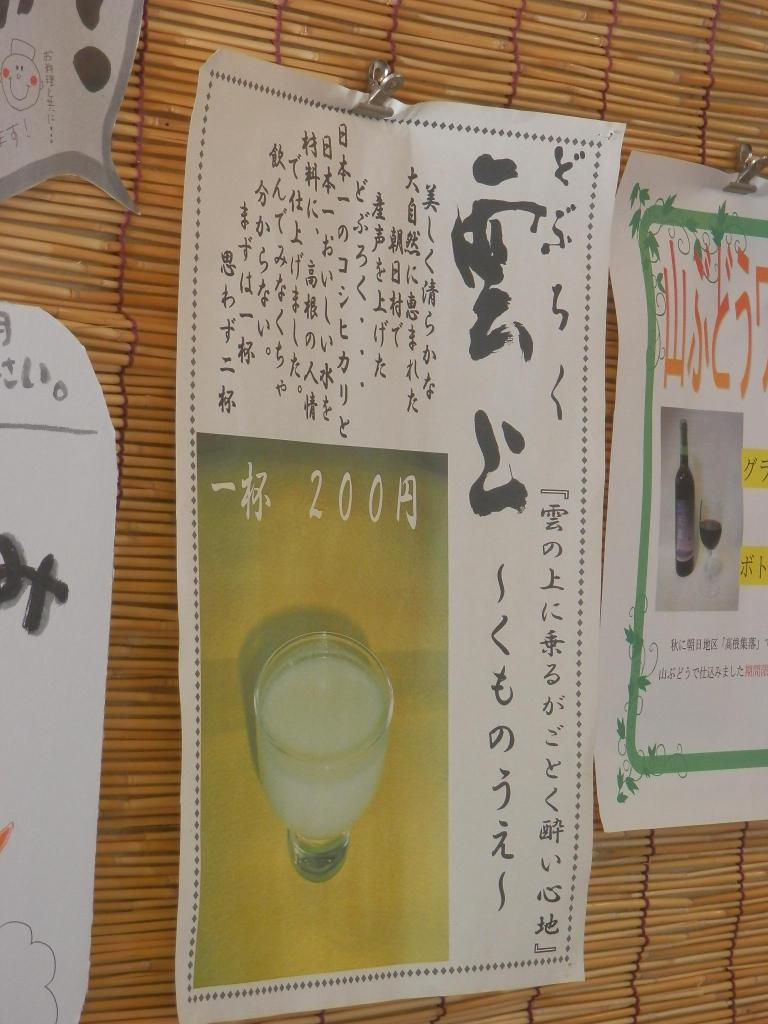 どぶちく
『雲の上に乗るがごとく酔い心地』
雲上
～くものうえ～
美しく清らかな
大自然に恵まれた
朝日村で
産声を上げた
どぶろく・・・
日本一のコシヒカリと
日本一おいしい水を
材料に、高根の人情
で仕上げました。
飲んでみなくちゃ
分からない。
まずは一杯
思わず二杯
一杯 200円
山ぶどうワ
グラ
ボト
秋に朝日地区「高根集落」で
山ぶどうで仕込みました期間限
お料理と共に・・・
ます!
月
さい。
み